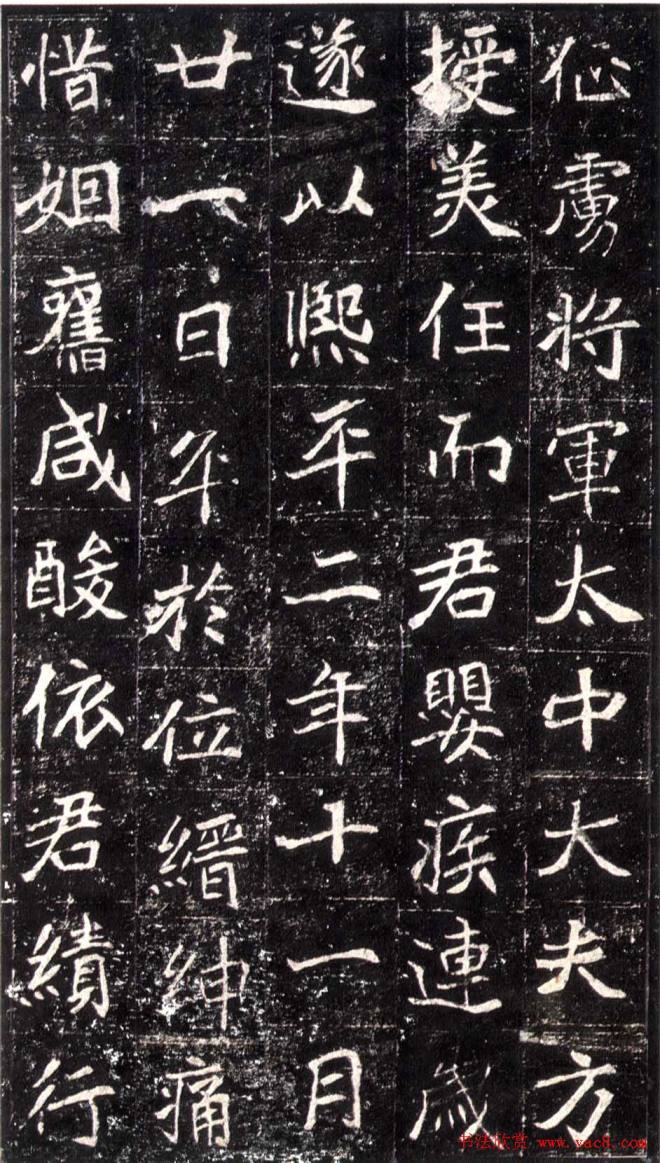 征虜将軍太中大夫方
授美任而君嬰疾連歳
遂以熙平二年十一月
廿一日卒於位縉紳痛
惜姻舊咸酸依君績行
书法欣赏 www.yac8.com